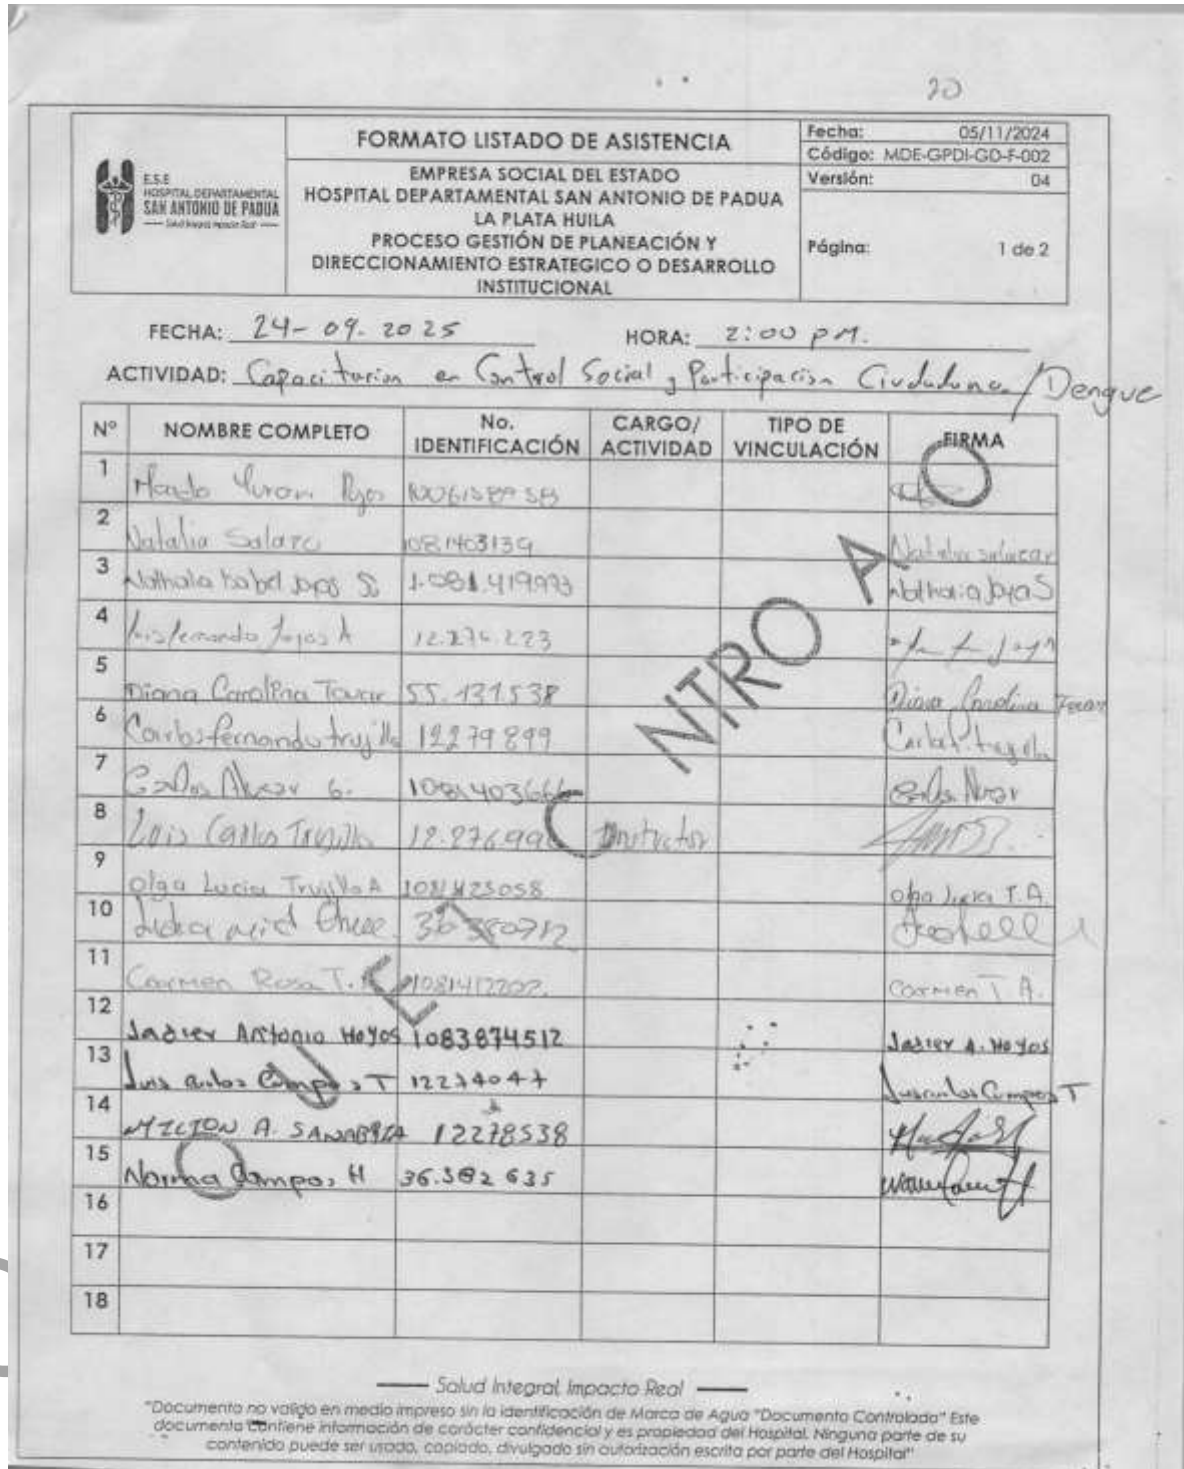 20
E.S.E
HOSPITAL DEPARTAMENTAL
SAN ANTONIO DE PADUA
Salud Integral Impacto Real
FORMATO LISTADO DE ASISTENCIA
EMPRESA SOCIAL DEL ESTADO
HOSPITAL DEPARTAMENTAL SAN ANTONIO DE PADUA
LA PLATA HUILA
PROCESO GESTIÓN DE PLANEACIÓN Y
DIRECCIONAMIENTO ESTRATEGICO O DESARROLLO
INSTITUCIONAL
Fecha: 05/11/2024
Código: MDE-GPDI-GD-F-002
Versión: 04
Página: 1 de 2
FECHA: 24-09-2025 HORA: 2:00 PM.
ACTIVIDAD: Capacitacion en Control Social y Participacion Ciudadana / Dengue
Nº NOMBRE COMPLETO No. IDENTIFICACIÓN CARGO/ ACTIVIDAD TIPO DE VINCULACIÓN FIRMA
1
2 Natalia Salazar 1081403139 Natalia salazar
3 Nathalia Isabel Joyas S 1.081.419993 Nathalia Joya S
4 Luis fernando Joyas A 12.274.223
5 Diana Carolina Tovar 55.131538 Diana Carolina Tovar
6 Carlos fernando trujillo 12279899 Carlos F. trujillo
7 Carlos Alvear G. 1081403666 Carlos Alvear
8 Luis Carlos Trujillo 12.27699 Instructor
9 Olga Lucia Trujillo A 1081423058 olga lucia T.A.
10 36380712
11 Carmen Rosa T. 1081412202. Carmen T A.
12 Jadier Antonio Hoyos 1083874512 Jadier A. Hoyos
13 Luis carlos Campos T 12274047 Luis carlos Campos T
14 MILTON A. SANABRIA 12278538
15 Norma Campos H 36.382 635
16
17
18
Salud Integral, Impacto Real
"Documento no valido en medio impreso sin la identificación de Marca de Agua "Documento Controlado" Este
documento contiene información de carácter confidencial y es propiedad del Hospital. Ninguna parte de su
contenido puede ser usado, copiado, divulgado sin autorización escrita por parte del Hospital"